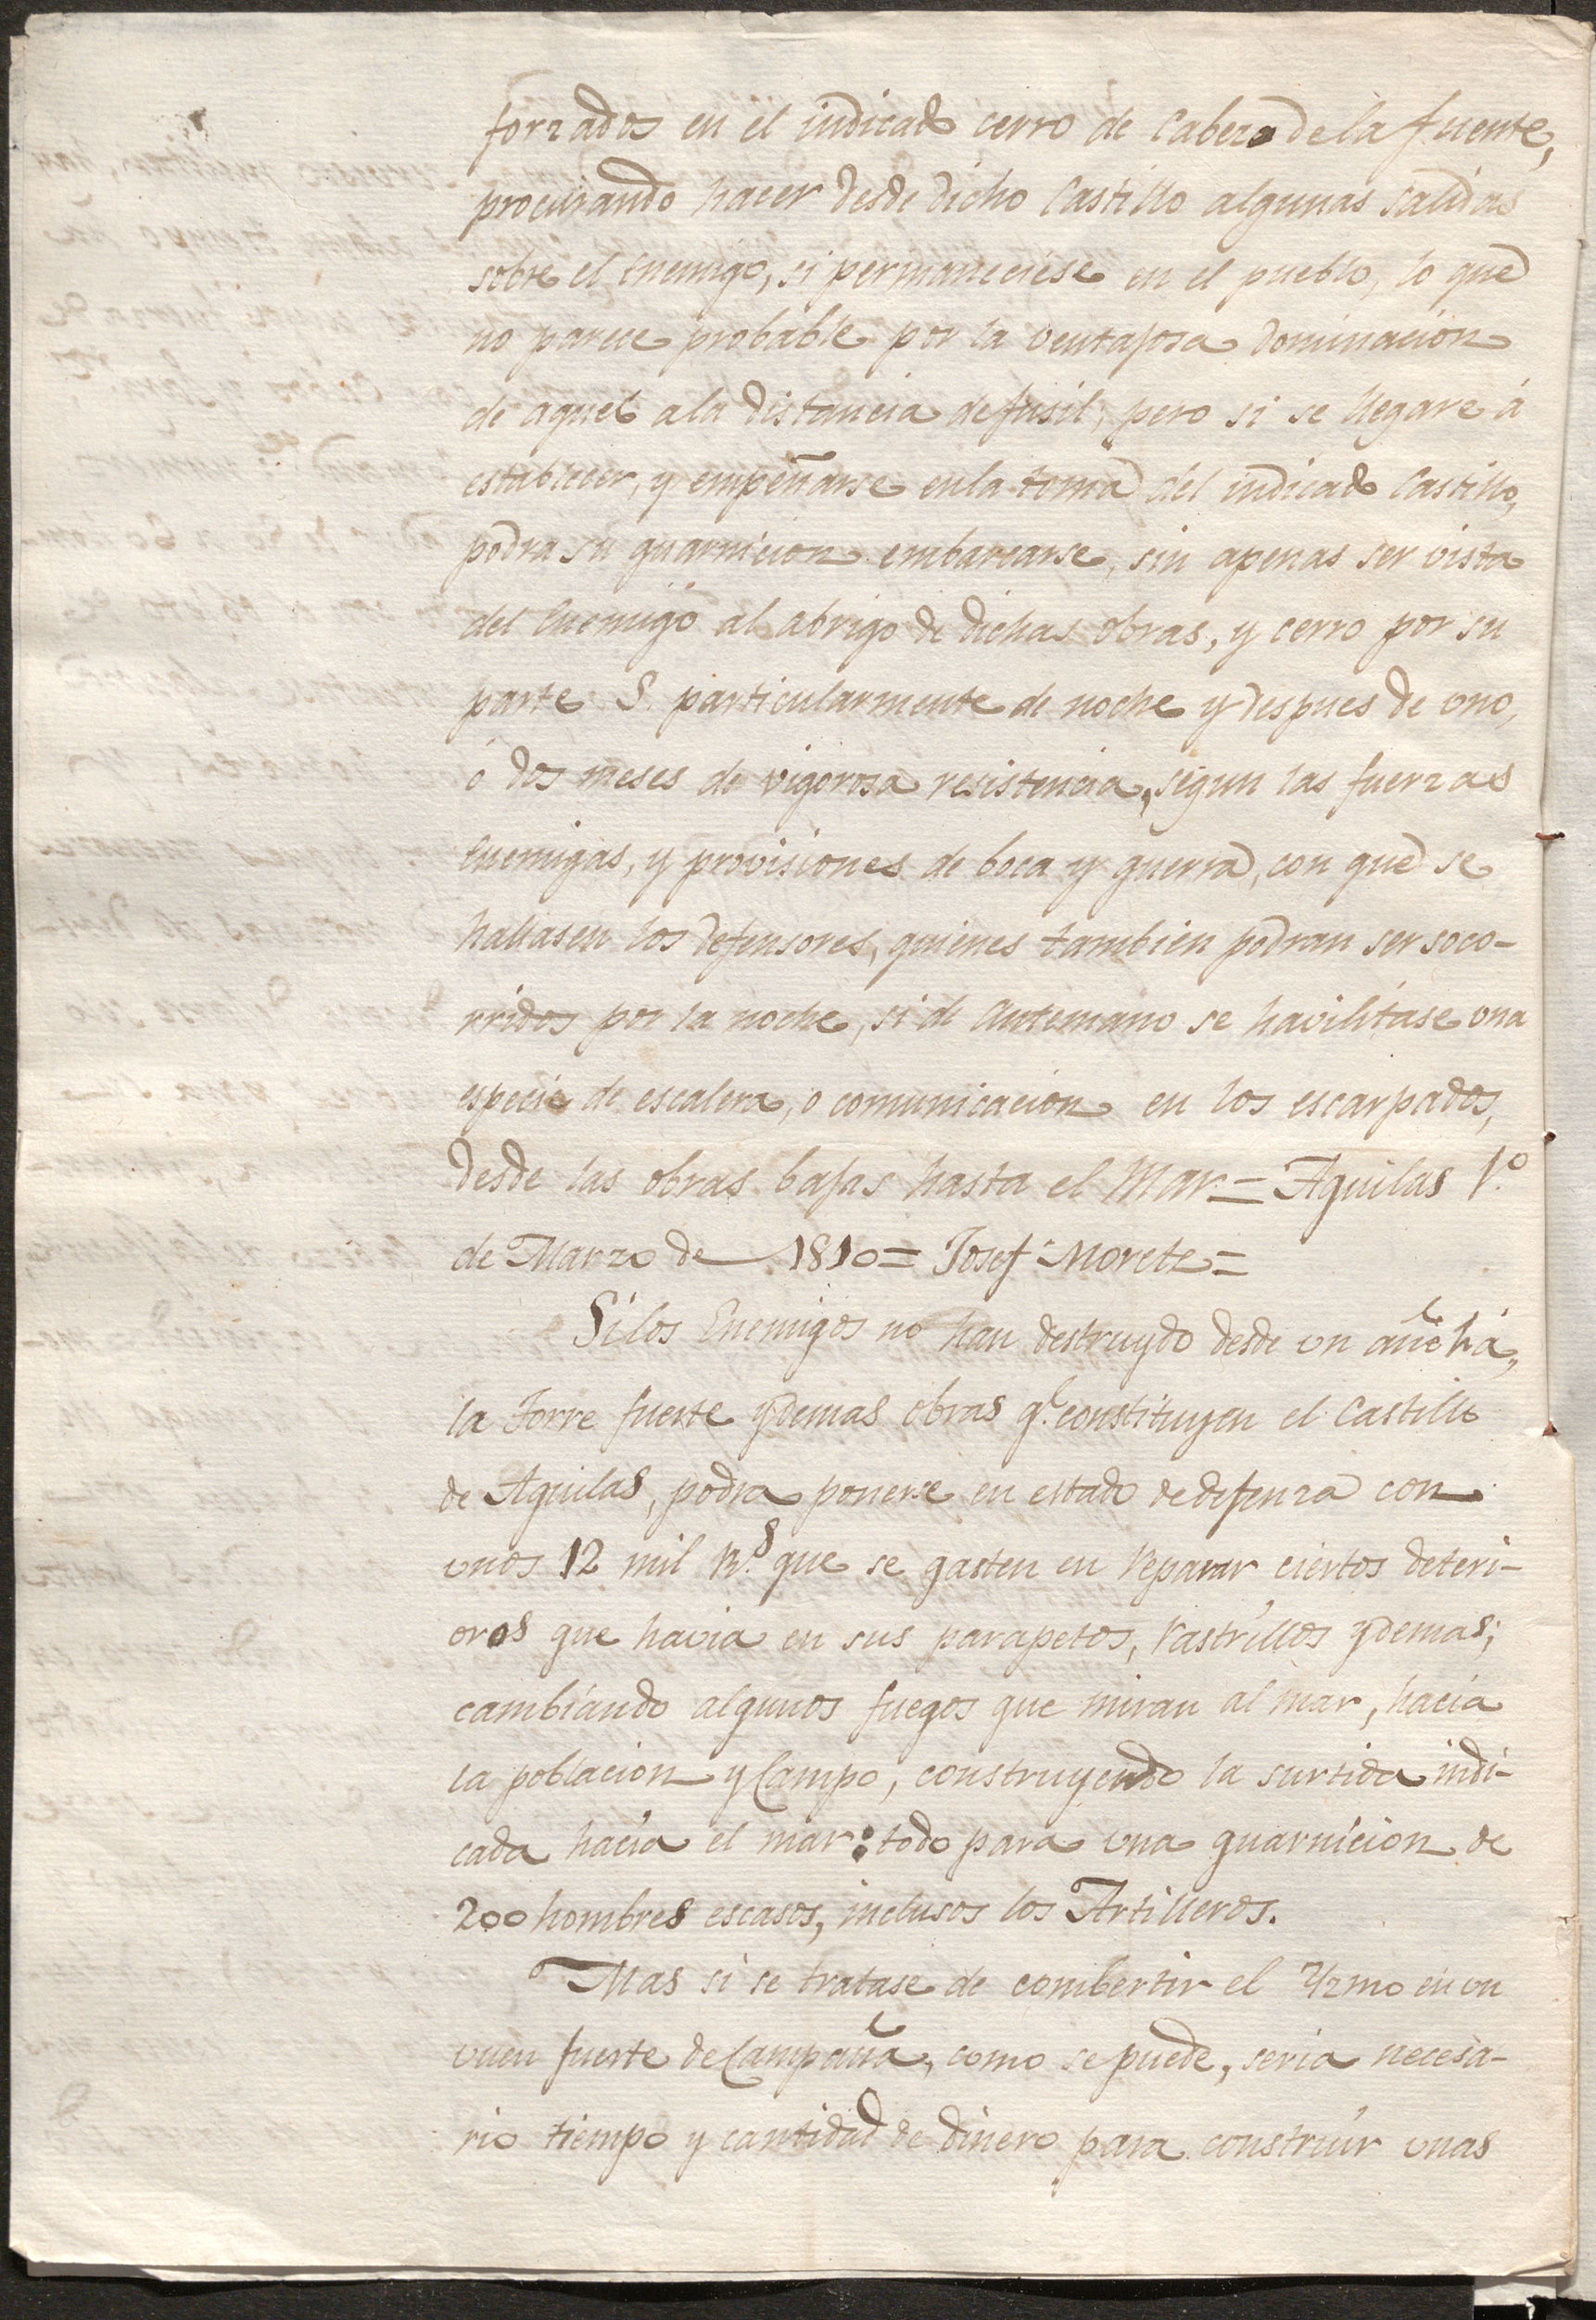 forzados en el indicado cerro de Cabezo de la fuente,
procurando hacer desde dicho Castillo algunas salidas
sobre el Enemigo, si permaneciese en el pueblo, lo que
no parece probable por la ventajosa dominacion
de aquel a la distancia de fusil, pero si se llegare á
establecer, y empeñarse en la toma del indicado Castillo,
podra su guarnicion embarcarse, sin apenas ser vista
del Enemigo al abrigo de dichas obras, y cerro por su
parte S. particularmente de noche y despues de uno,
ó dos meses de vigorosa resistencia, segun las fuerzas
Enemigas, y provisiones de boca y guerra, con que se
hallasen los defensores, quienes tambien podran ser soco-
rridos por la noche, si de Antemano se havilitase una
especie de escalera, o comunicacion en los escarpados,
desde las obras bajas hasta el Mar = Aguilas 1.º
de Marzo de 1810 = Josef Morete =
Si los Enemigos no han destruydo desde un año há,
la Torre fuerte y demas obras q.e constituyen el Castillo
de Aguilas, podra ponerse en estado de defenza con
unos 12 mil R.s que se gasten en reparar ciertos deteri-
oros que havia en sus parapetos, rastrillos y demas;
cambiando algunos fuegos que miran al mar, hacia
la poblacion y Campo, construyendo la surtida indi-
cada hacia el mar: todo para una guarnicion de
200 hombres escasos, inclusos los Artilleros.
Mas si se tratase de combertir el mo en un
vuen fuerte de Campaña, como se puede, seria necesa-
rio tiempo y cantidad de dinero para construir unas